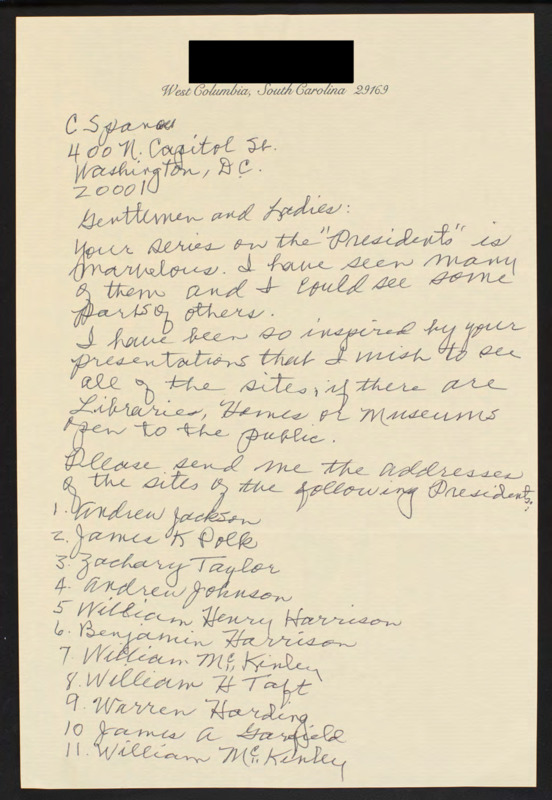 West Columbia, South Carolina 29169
C Span
400 N. Capitol St.
Washington, D.C.
20001
Gentlemen and Ladies:
Your series on the "Presidents" is
marvelous. I have seen many
of them and I could see some
parts of others.
I have been so inspired by your
presentations that I wish to see
all of the sites, if there are
Libraries, Homes or Museums
open to the public.
Please send me the addresses
of the sites of the following Presidents:
1. Andrew Jackson
2. James K Polk
3. Zachary Taylor
4. Andrew Johnson
5 William Henry Harrison
6. Benjamin Harrison
7. William Mc. Kinley
8. William H Taft
9. Warren Harding
10 James A Garfield
11. William Mc. Kinley